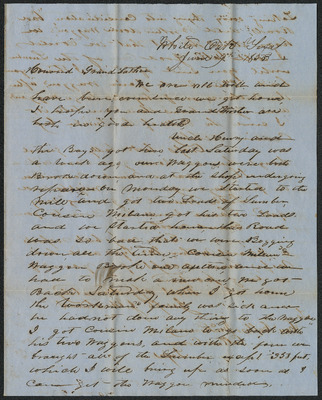 White Oak
June 9th
Honored Grand Father
We are all well and
have been since we got home
I hope you and Grand Mother are
both in good health
Uncle Henry and
The Boys got here last Saturday was
a week ago our Waggons were both
Broke down and at the Shops undergoing
repairs on Monday we Started to the
Mill and got two Loads of Lumber
Cousin Milans got his two Loads
and we Started home the Road
was So bad that we were Bogging
down all the time. Cousin Milans
Waggon Broke an axletree we
had to
Back Saturday when I got home
the was sick and
he had not done any thing to the Waggon
I got Cousin Milans to go back with
his two Waggons, and with the four we
brought all of the Lumber 3351 feet
which I will bring up as soon as I
Can get the Waggon mended